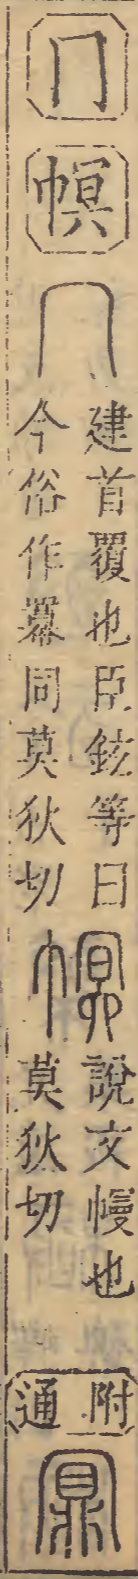 冂
幎
冖
建首覆也臣鉉等曰
今俗作羃同莫狄切
幎
說文幔也
莫狄切
附通
鼏